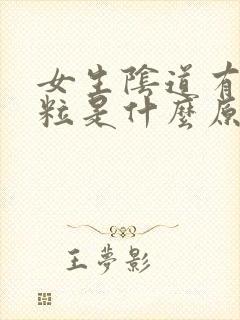 女生陰道有
粒是什麼原
王夢影